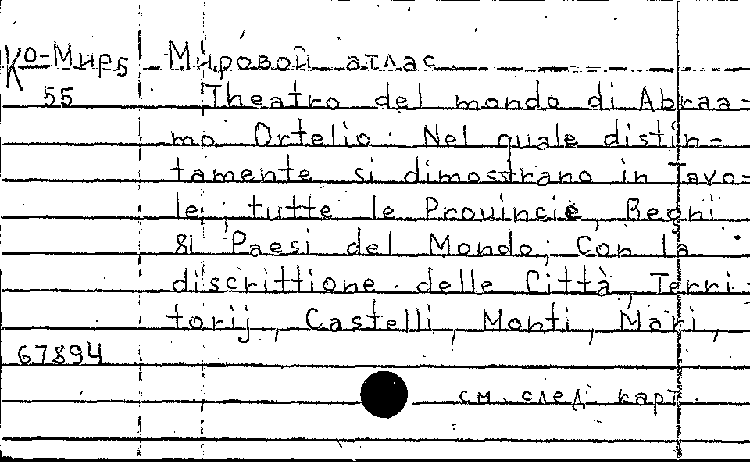 Ко-Мир5 Мировой атлас
55 Theatro del mondo di Abraa-
mo Ortelio: Nel quale distin-
tamente si dimostrano in Tavo-
le, tutte le Prouincie, Regni
& Paesi del Mondo; Con la
discrittione delle Città, Terri-
torij, Castelli, Monti, Mari,
67894
см. след. карт.